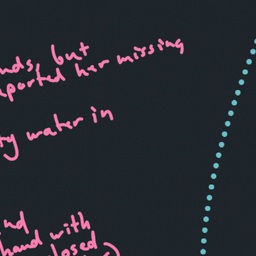 nds, but
ported her missing
ty water in
nd
hand with
losed